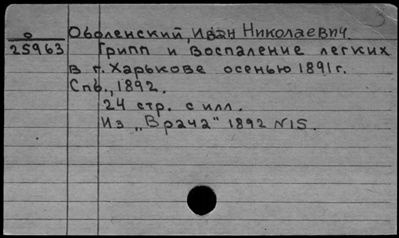 О Оболенский, Иван Николаевич.
25963 Грипп и воспаление легких
в г. Харькове осенью 1891 г.
Спб., 1892.
24 стр. с илл.
Из „Врача" 1892 №15.